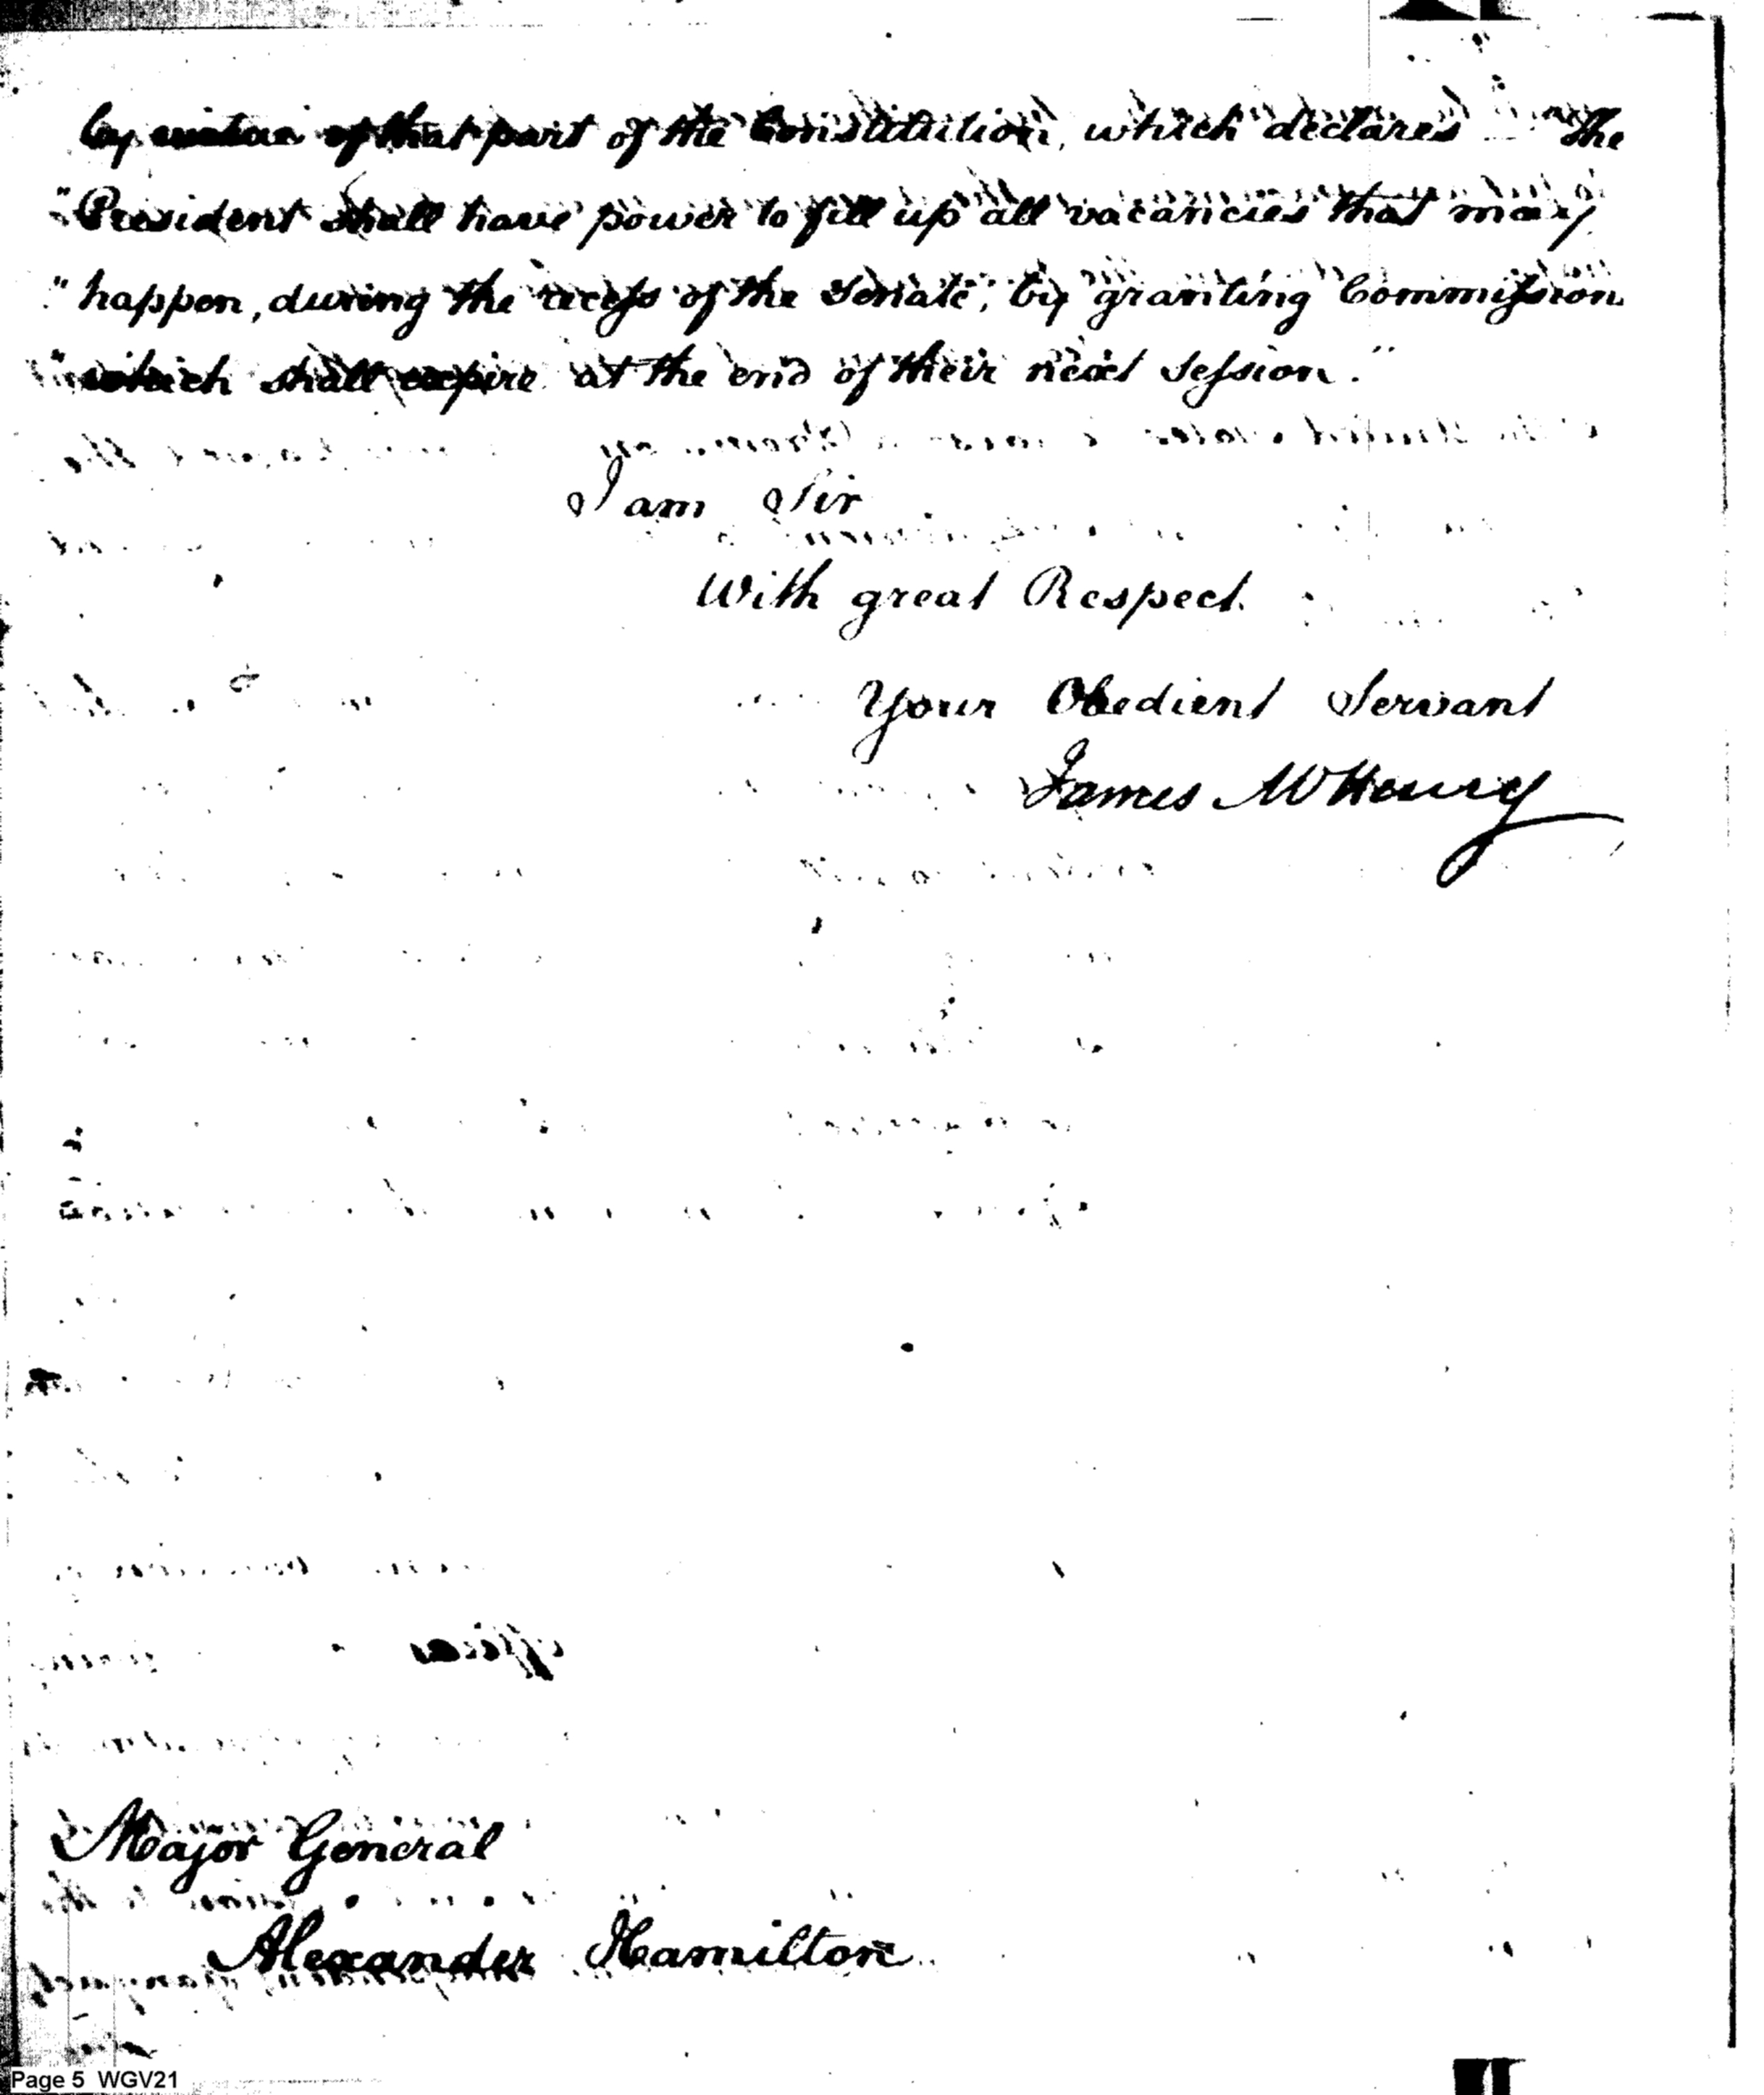 by virtue of that part of the Constitution, which declares "the
"President shall have power to fill up all vacancies that may
"happen, during the recess of the Senate, by granting Commission
"which shall expire at the end of their next session."
I am Sir
With great Respect
Your Obedient Servant
James McHenry
Major General
Alexander Hamilton
Page 5 WGV21